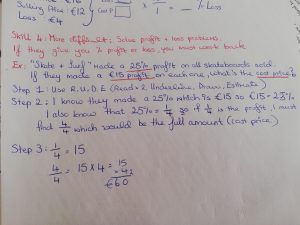 Selling Price: €12
Loss: €4
Cost P
x
1
=
% Loss
Skill 4: More difficult; Solve profit + loss problems.
If they give you % profit or loss, you must work back
Ex: "Skate + Surf" made a 25% profit on all skateboards sold.
If they made a €15 profit on each one, what's the cost price?
Step 1: Use R.U.D.E (Read x 2, Underline, Draw, Estimate)
Step 2: I know they made a 25% which is €15 so €15 = 25%
I also know that 25% = 1/4 so if 1/4 is the profit, I must
that 4/4 which would be the full amount (cost price)
Step 3: 1/4 = 15
4/4 = 15 x 4 = 15
x 4
€60